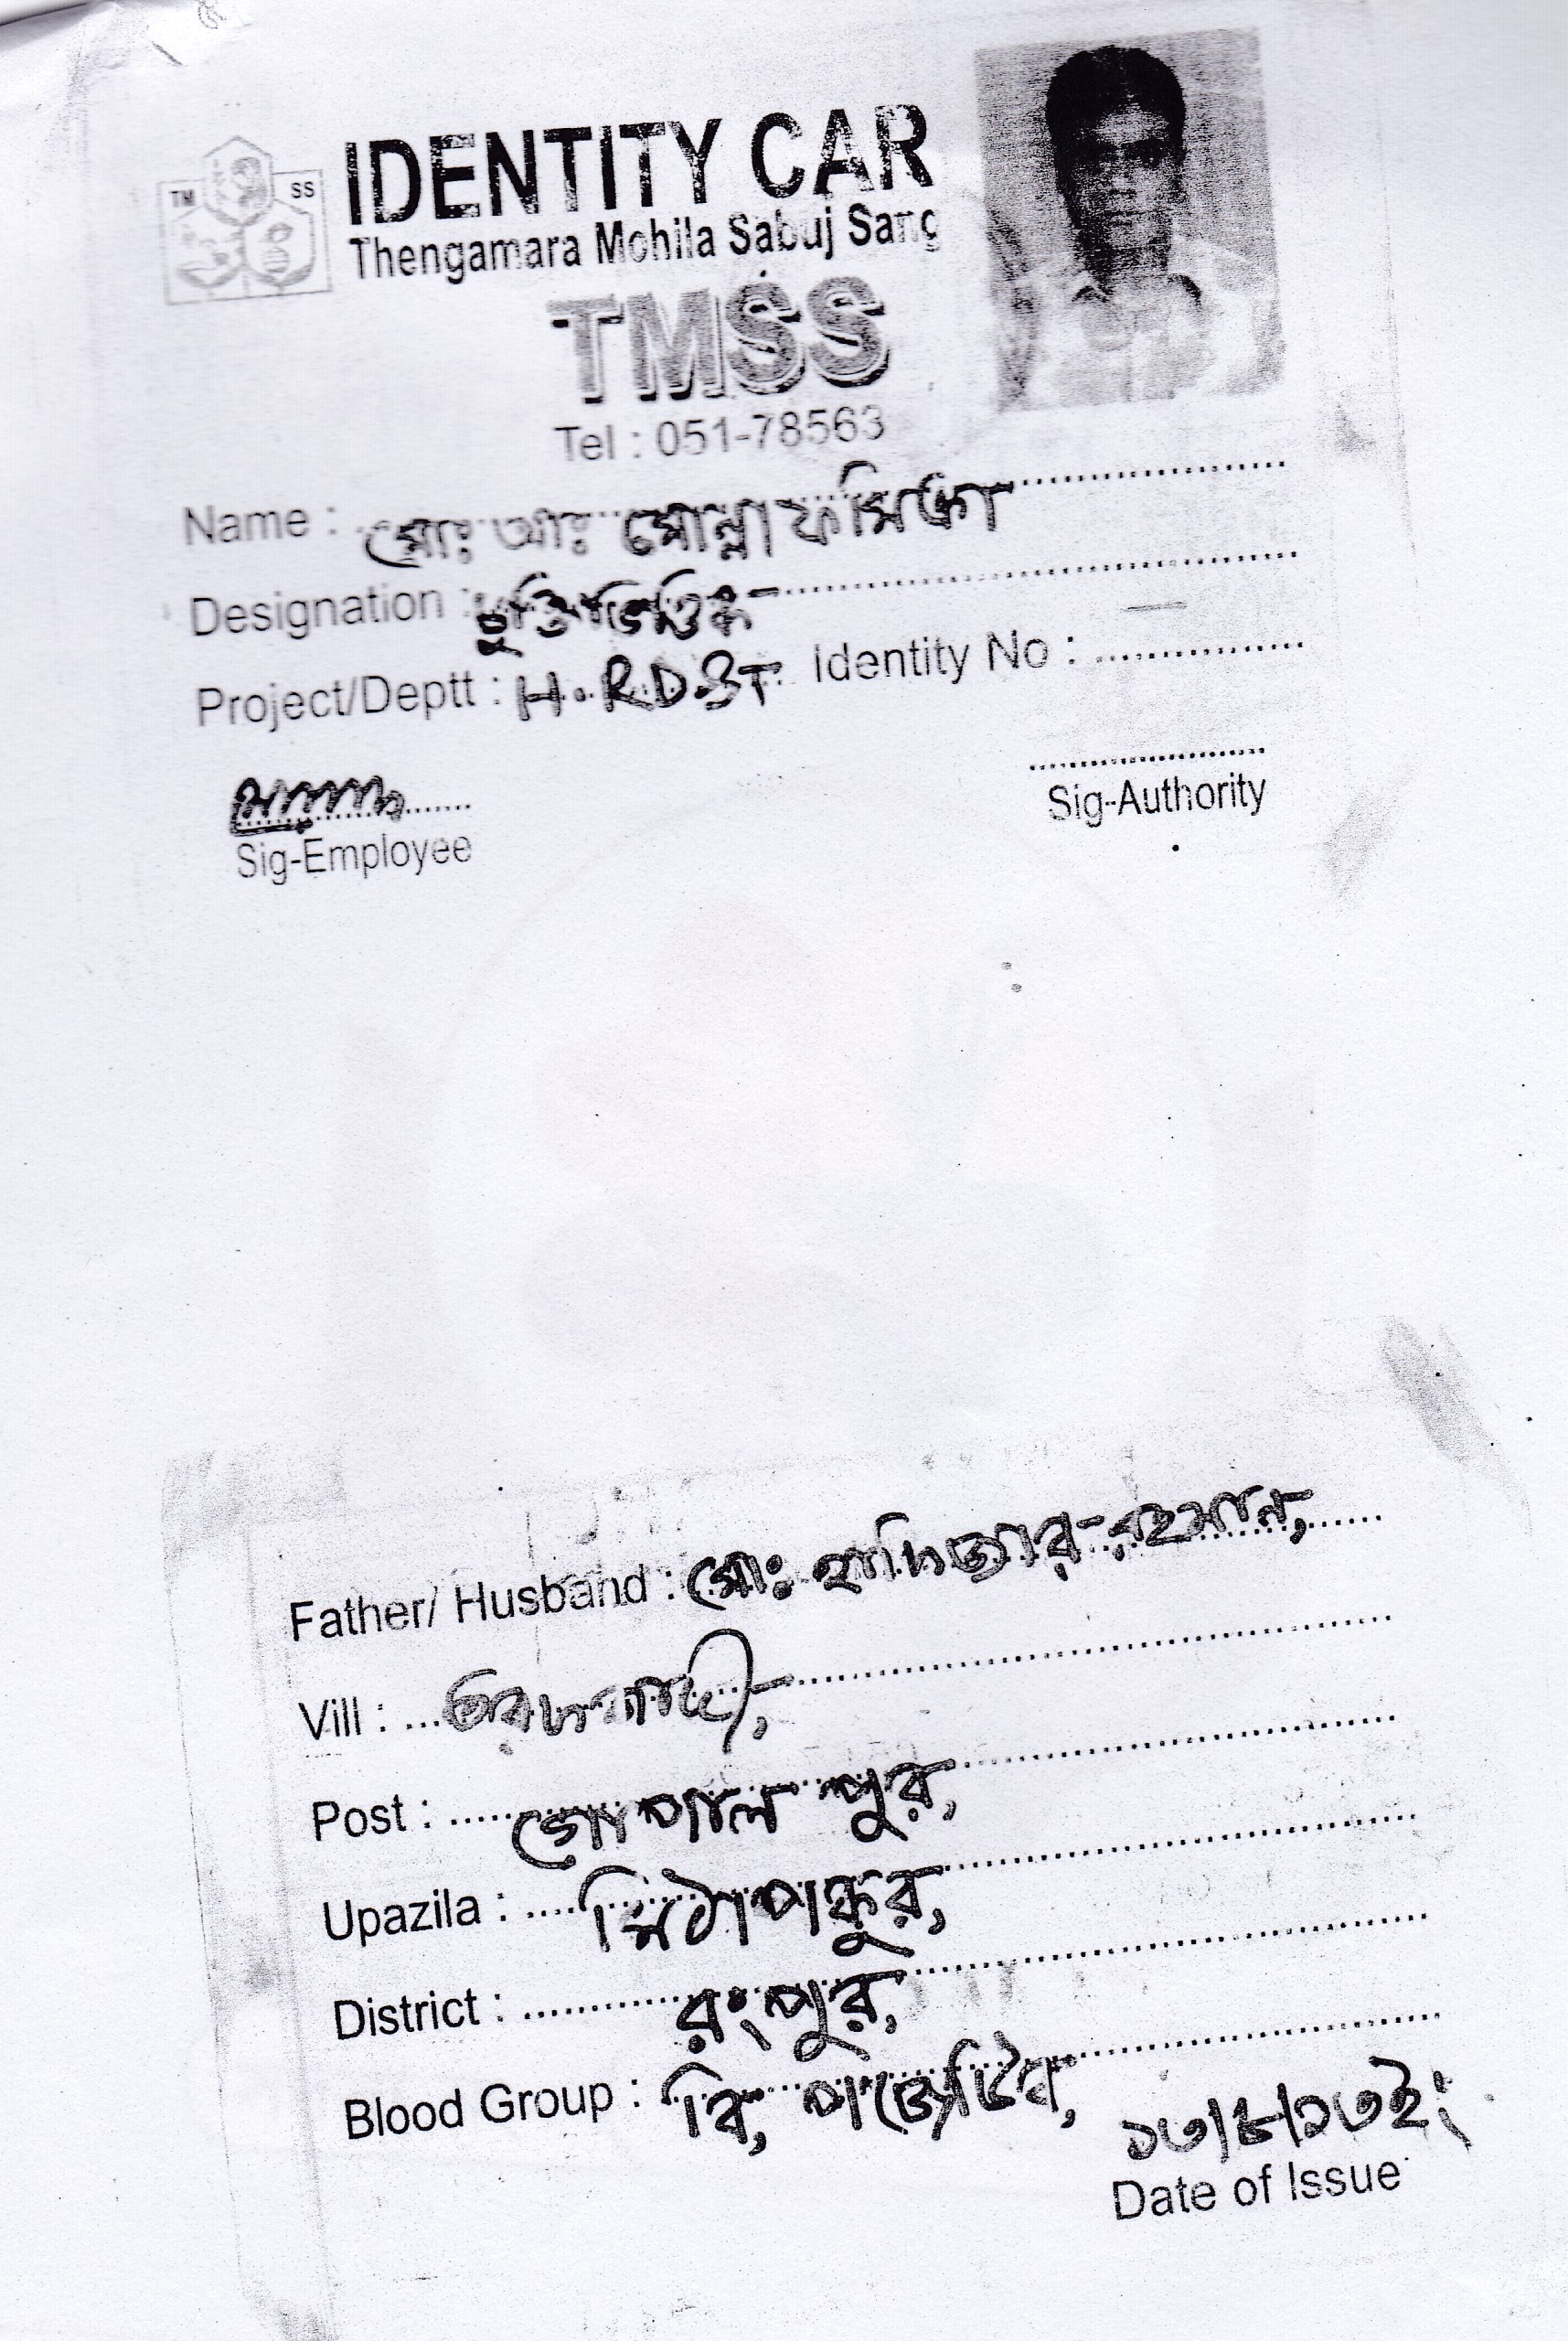 TM SS
IDENTITY CAR
Thengamara Mohila Sabuj Sang
TMSS
Tel : 051-78563
Name : মোঃ আঃ মোন্না ফ
Designation : চুক্তি ভিত্তিক
Project/Deptt : H.RD.ST. Identity No :
Sig-Employee
Sig-Authority
Father/ Husband : মোঃ হাদিজার রহমান,
Vill :
Post : গোপাল পুর,
Upazila : মিঠাপুকুর,
District : রংপুর,
Blood Group : বি, পজেটিব,
১৩/৪/১৩ইং
Date of Issue